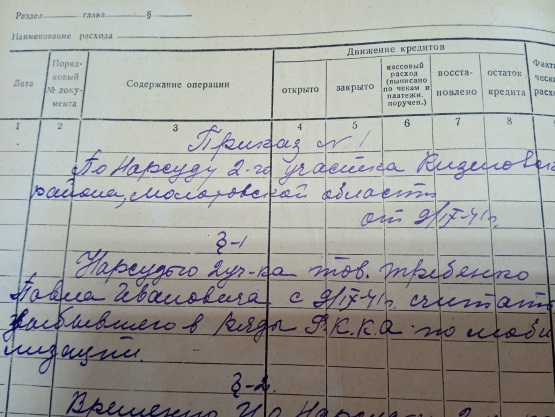 Раздел глава §
Наименование расхода
Дата
Поряд-
ковый
№ доку-
мента
Содержание операции
Движение кредитов
открыто
закрыто
кассовый
расход
(выписано
по чекам и
платежн.
поручен.)
восста-
новлено
остаток
кредита
Факти
чески
расхо
1 2 3 4 5 6 7 8
Приказ № 1
По Нарсуду 2-го участка Кизеловског
района, Молотовской области
от 9/IX-41 г.
§-1
Нарсудью 2 уч-ка тов. Требенко
Павла Ивановича с 9/IX-41 г. считать
выбывшего в ряды Р.К.К.А. по моби
лизации.
§-2.
Временно И о Нарсудьи 2